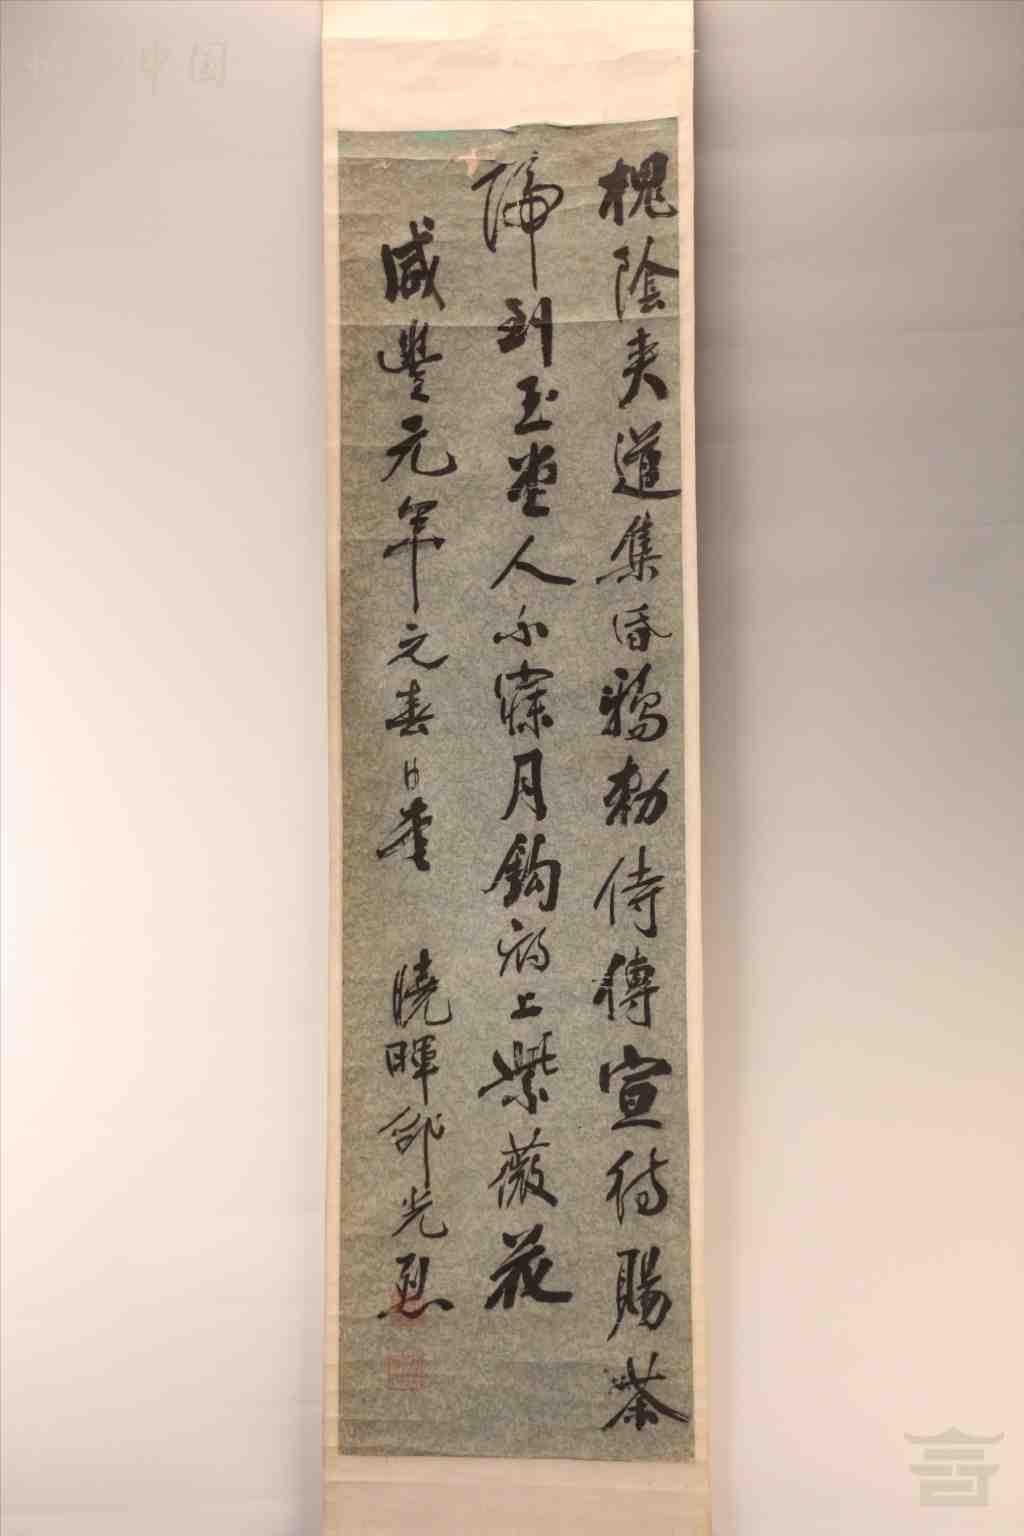 槐陰夾道集昏鴉勅侍傳宣待賜茶
歸到玉堂人不寐月鈎初上紫薇花
咸豐元年元春日書 曉暉邵光烈
中国